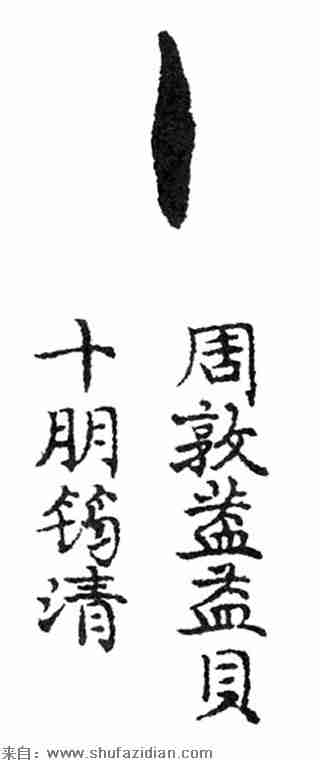 丨
周敦蓋益貝
十朋筠清
来自：www.shufazidian.com